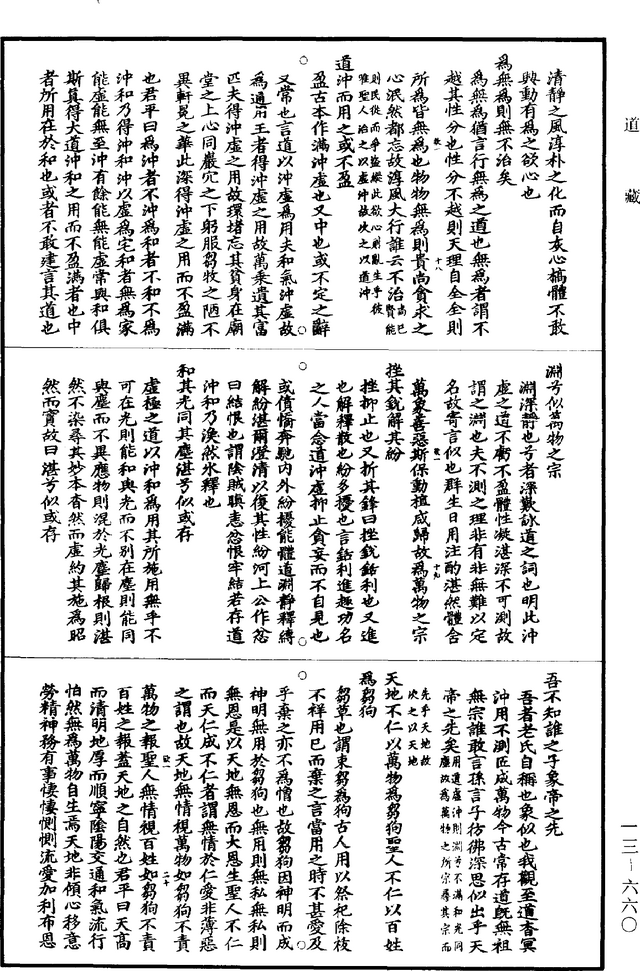 道藏
清靜之風淳朴之化而自灰心槁體不敢
興動有為之欲心也
為無為則無不治矣
為無為猶言行無為之道也無為者謂不
越其性分也性分不越則天理自全全則
所為皆無為也物物無為則貴尚貪求之
心泯然都忘故淳風大行誰云不治
道沖而用之或不盈
盈古本作滿沖虛也又中也或不定之辭
又常也言道以沖虛為用夫和氣沖虛故
為通用王者得沖虛之用故萬乘遺其富
匹夫得沖虛之用故環堵忘其貧身在廟
堂之上心同巖穴之下躬服芻牧之陋不
異軒冕之華此深得沖虛之用而不盈滿
也君平曰為沖者不沖為和者不和不為
沖和乃得沖和沖以虛為宅和者無為家
能虛能無至沖有餘能無能虛常與和俱
斯真得大道沖和之用而不盈滿者也中
者所用在於和也或者不敢建言其道也
淵兮似萬物之宗
淵深靜也兮者深歎詠道之詞也明此沖
虛之道不虧不盈體性凝湛深不可測故
謂之淵也夫不測之理非有非無難以定
名故寄言似也群生日用注酌湛然體含
萬象善惡斯保動植咸歸故為萬物之宗
挫其銳解其紛
挫抑止也又折其鋒曰挫銳銛利也又進
也解釋散也紛多擾也言銛利進趣功名
之人當念道沖虛抑止貪妄而不自見也
或憤憍奔馳內外紛擾能體道淵靜釋縛
解紛湛爾澄清以復其性紛河上公作忿
曰結恨也謂陰賊嗔恚忿恨牢結若存道
沖和乃渙然氷釋也
和其光同其塵湛兮似或存
虛極之道以沖和為用其所施用無乎不
可在光則能和與光而不別在塵則能同
與塵而不異應物則混於光塵歸根則湛
然不染尋其妙本杳然而虛約其施為昭
然而實故曰湛兮似或存
吾不知誰之子象帝之先
吾者老氏自稱也象似也我觀至道杳冥
沖用不測匠成萬物今古常存道旣無祖
無宗誰敢言孫言子彷彿深思似出乎天
帝之先矣用道虛沖則淵兮不滿和光同
塵故為萬物之所宗尋其宗而
先乎天地故
次之以天地
天地不仁以萬物為芻狗聖人不仁以百姓
為芻狗
芻草也謂束芻為狗古人用以祭祀除祓
不祥用已而棄之言當用之時不甚愛及
乎棄之亦不為憎也故芻狗因神明而成
神明無用於芻狗也無用則無私無私則
無恩是以天地無恩而大恩生聖人不仁
而大仁成不仁者謂無情於仁愛非薄惡
之謂也故天地無情視萬物如芻狗不責
萬物之報聖人無情視百姓如芻狗不責
百姓之報蓋天地之自然也君平曰天高
而清明地厚而順寧陰陽交通和氣流行
怕然無為萬物自生焉天地非傾心移意
勞精神務有事悽悽惻惻流愛加利布恩
一三－六六〇